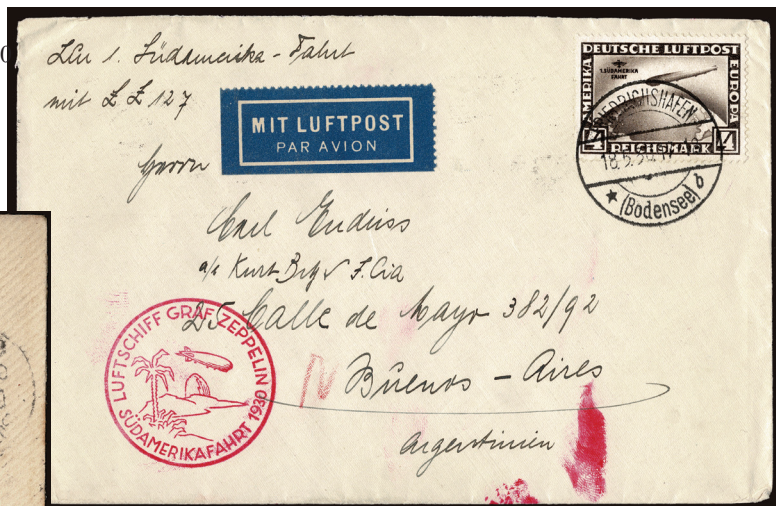 Zur 1. Südamerika-Fahrt
mit L Z 127
MIT LUFTPOST
PAR AVION
DEUTSCHE LUFTPOST
AMERIKA
EUROPA
1. SÜDAMERIKA
FAHRT
4 REICHSMARK 4
FRIEDRICHSHAFEN
18.5.30
(Bodensee) b
Herrn
Carl Endriss
a/c Kurt & F. Cia
25 Calle de Mayo 382/92
Buenos - Aires
Argentinien
LUFTSCHIFF GRAF ZEPPELIN
SÜDAMERIKAFAHRT 1930